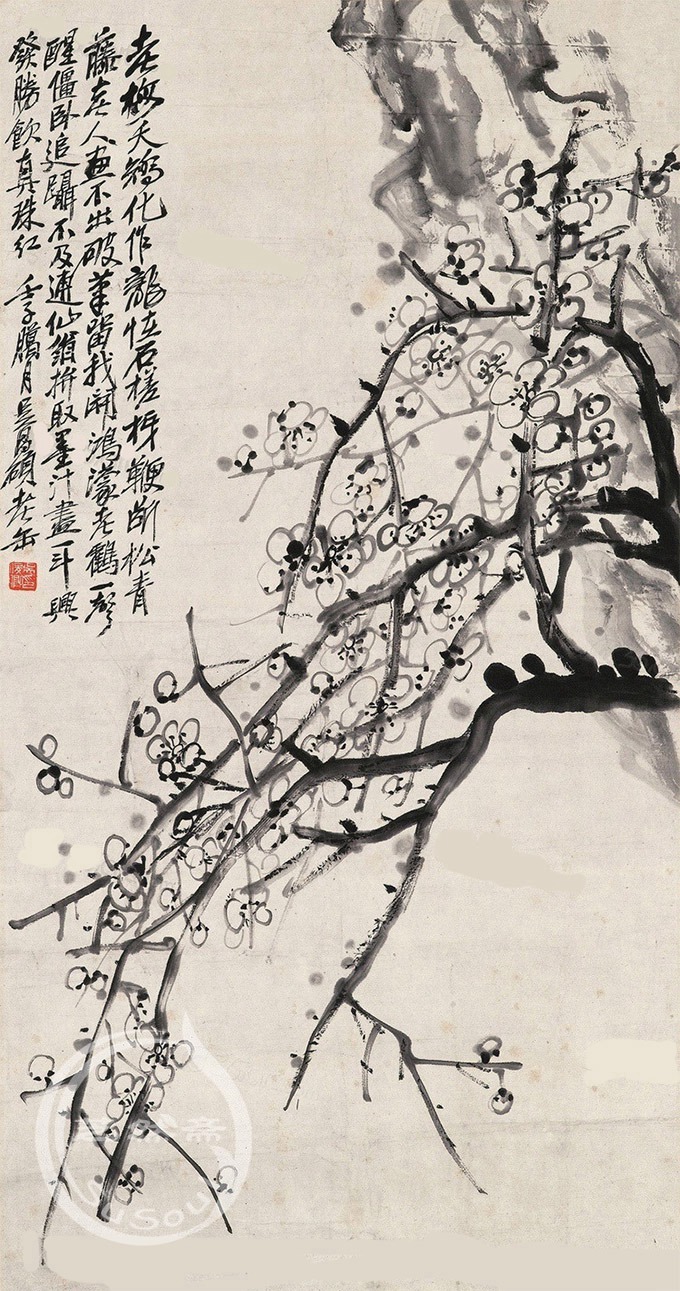 老梅夭矯化作龍怪石槎枒鞭斷松青
藤老人畫不出破筆留我開鴻濛老鶴一聲
醒僵卧追躡不及逋仙蹤拚取墨汁盡一斗興
發勝飲真珠紅 壬子臘月吳昌碩老缶
SuSou